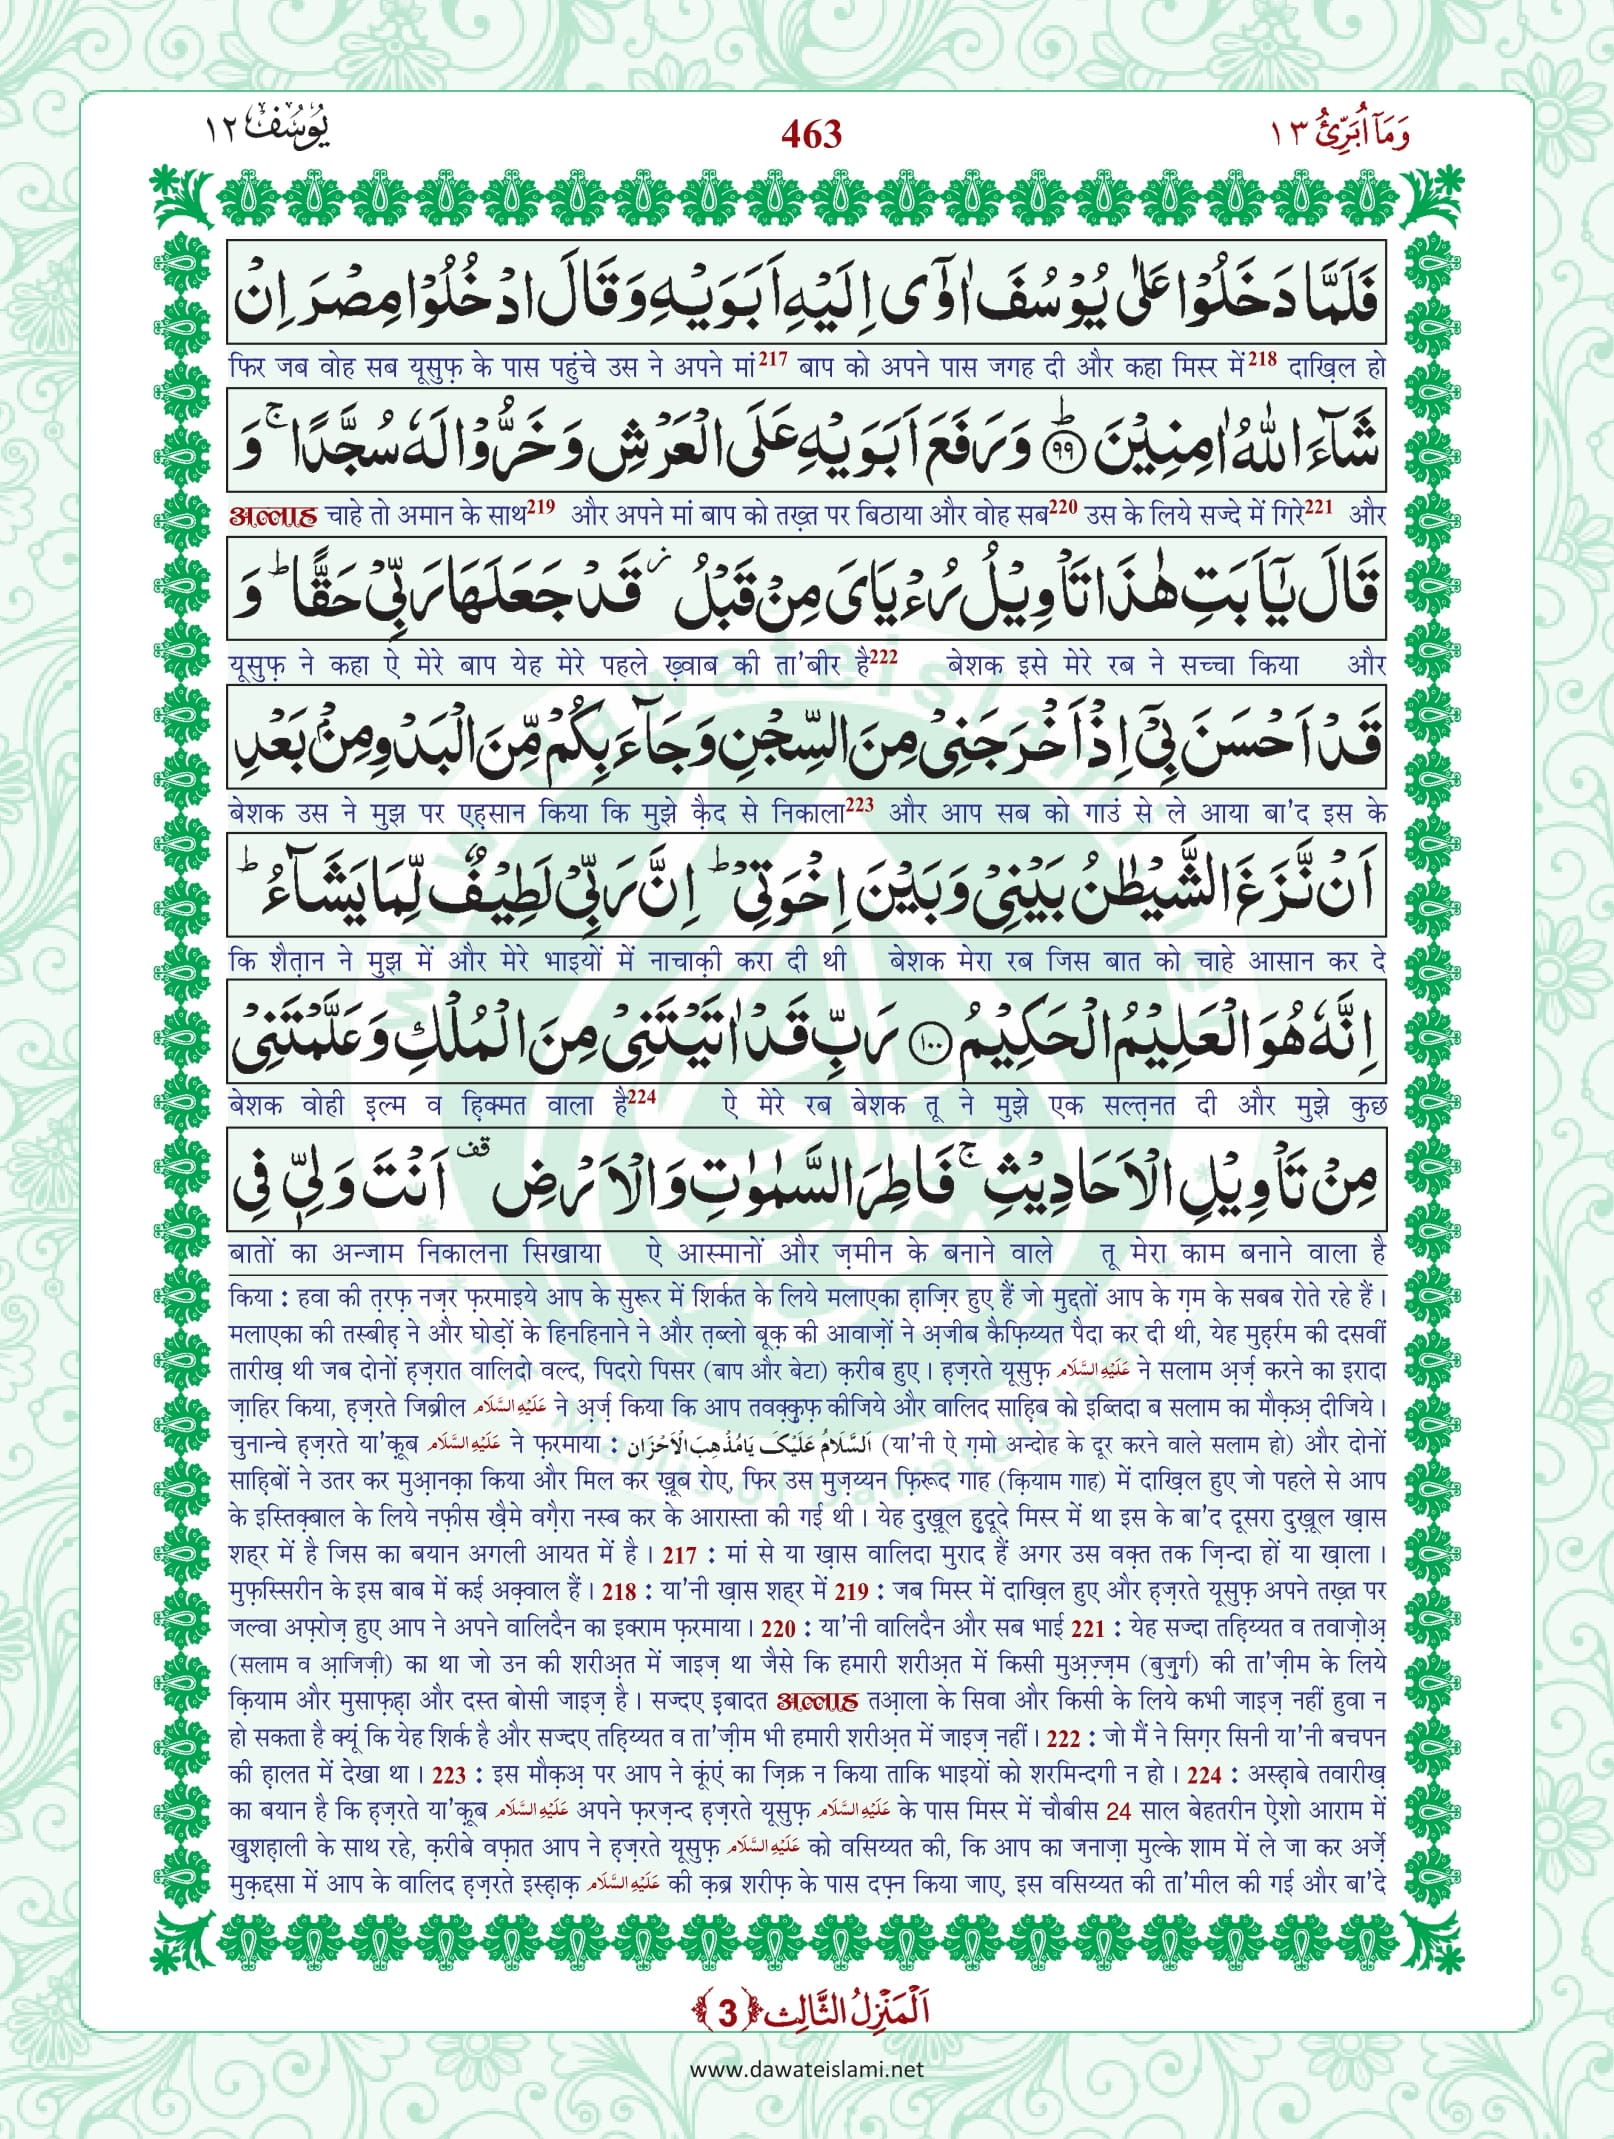 يُوْسُف ١٢
463
وَمَاۤ اُبَرِّئُ ١٣
فَلَمَّا دَخَلُوْا عَلٰى يُوْسُفَ اٰوٰۤى اِلَيْهِ اَبَوَيْهِ وَقَالَ ادْخُلُوْا مِصْرَ اِنْ
फिर जब वोह सब यूसुफ़ के पास पहुंचे उस ने अपने मां217 बाप को अपने पास जगह दी और कहा मिस्र में218 दाख़िल हो
شَآءَ اللّٰهُ اٰمِنِيْنَ ؕ﴿۹۹﴾ وَرَفَعَ اَبَوَيْهِ عَلَى الْعَرْشِ وَخَرُّوْا لَهٗ سُجَّدًا ۚ وَ
अल्लाह चाहे तो अमान के साथ219 और अपने मां बाप को तख़्त पर बिठाया और वोह सब220 उस के लिये सज्दे में गिरे221 और
قَالَ يٰۤاَبَتِ هٰذَا تَاْوِيْلُ رُءْيَاىَ مِنْ قَبْلُ ز قَدْ جَعَلَهَا رَبِّىْ حَقًّا ؕ وَ
यूसुफ़ ने कहा ऐ मेरे बाप येह मेरे पहले ख़्वाब की ता'बीर है222 बेशक इसे मेरे रब ने सच्चा किया और
قَدْ اَحْسَنَ بِىْۤ اِذْ اَخْرَجَنِىْ مِنَ السِّجْنِ وَجَآءَ بِكُمْ مِّنَ الْبَدْوِ مِنْۢ بَعْدِ
बेशक उस ने मुझ पर एह़सान किया कि मुझे क़ैद से निकाला223 और आप सब को गाउं से ले आया बा'द इस के
اَنْ نَّزَغَ الشَّيْطٰنُ بَيْنِىْ وَبَيْنَ اِخْوَتِىْ ؕ اِنَّ رَبِّىْ لَطِيْفٌ لِّمَا يَشَآءُ ؕ
कि शैत़ान ने मुझ में और मेरे भाइयों में नाचाक़ी करा दी थी बेशक मेरा रब जिस बात को चाहे आसान कर दे
اِنَّهٗ هُوَ الْعَلِيْمُ الْحَكِيْمُ ﴿۱۰۰﴾ رَبِّ قَدْ اٰتَيْتَنِىْ مِنَ الْمُلْكِ وَعَلَّمْتَنِىْ
बेशक वोही इ़ल्म व ह़िक्मत वाला है224 ऐ मेरे रब बेशक तू ने मुझे एक सल्त़नत दी और मुझे कुछ
مِنْ تَاْوِيْلِ الْاَحَادِيْثِ ۚ فَاطِرَ السَّمٰوٰتِ وَالْاَرْضِ قف اَنْتَ وَلِىّٖ فِى
बातों का अन्जाम निकालना सिखाया ऐ आस्मानों और ज़मीन के बनाने वाले तू मेरा काम बनाने वाला है
किया : हवा की त़रफ़ नज़र फ़रमाइये आप के सुरूर में शिर्कत के लिये मलाएका ह़ाज़िर हुए हैं जो मुद्दतों आप के ग़म के सबब रोते रहे हैं।
मलाएका की तस्बीह़ ने और घोड़ों के हिनहिनाने ने और त़ब्लो बूक़ की आवाज़ों ने अ़जीब कैफ़िय्यत पैदा कर दी थी, येह मुह़र्रम की दसवीं
तारीख़ थी जब दोनों ह़ज़रात वालिदो वल्द, पिदरो पिसर (बाप और बेटा) क़रीब हुए। ह़ज़रते यूसुफ़ عَلَيْهِ السَّلَام ने सलाम अ़र्ज़ करने का इरादा
ज़ाहिर किया, ह़ज़रते जिब्रील عَلَيْهِ السَّلَام ने अ़र्ज़ किया कि आप तवक़्क़ुफ़ कीजिये और वालिद साह़िब को इब्तिदा ब सलाम का मौक़अ़ दीजिये।
चुनान्चे ह़ज़रते या'क़ूब عَلَيْهِ السَّلَام ने फ़रमाया : اَلسَّلَامُ عَلَيْكَ يَامُذْهِبَ الْاَحْزَان (या'नी ऐ ग़मो अन्दोह के दूर करने वाले सलाम हो) और दोनों
साह़िबों ने उतर कर मुआ़नक़ा किया और मिल कर ख़ूब रोए, फिर उस मुज़य्यन फ़िरूद गाह (क़ियाम गाह) में दाख़िल हुए जो पहले से आप
के इस्तिक़्बाल के लिये नफ़ीस ख़ैमे वग़ैरा नस्ब कर के आरास्ता की गई थी। येह दुख़ूल हु़दूदे मिस्र में था इस के बा'द दूसरा दुख़ूल ख़ास
शहर में है जिस का बयान अगली आयत में है। 217 : मां से या ख़ास वालिदा मुराद हैं अगर उस वक़्त तक ज़िन्दा हों या ख़ाला।
मुफ़स्सिरीन के इस बाब में कई अक़्वाल हैं। 218 : या'नी ख़ास शहर में 219 : जब मिस्र में दाख़िल हुए और ह़ज़रते यूसुफ़ अपने तख़्त पर
जल्वा अफ़्रोज़ हुए आप ने अपने वालिदैन का इक्राम फ़रमाया। 220 : या'नी वालिदैन और सब भाई 221 : येह सज्दा तह़िय्यत व तवाज़ोअ़
(सलाम व आ़जिज़ी) का था जो उन की शरीअ़त में जाइज़ था जैसे कि हमारी शरीअ़त में किसी मुअ़ज़्ज़म (बुज़ुर्ग) की ता'ज़ीम के लिये
क़ियाम और मुसाफ़ह़ा और दस्त बोसी जाइज़ है। सज्दए इ़बादत अल्लाह तआ़ला के सिवा और किसी के लिये कभी जाइज़ नहीं हुवा न
हो सकता है क्यूं कि येह शिर्क है और सज्दए तह़िय्यत व ता'ज़ीम भी हमारी शरीअ़त में जाइज़ नहीं। 222 : जो मैं ने सिग़र सिनी या'नी बचपन
की ह़ालत में देखा था। 223 : इस मौक़अ़ पर आप ने कूंएं का ज़िक्र न किया ताकि भाइयों को शरमिन्दगी न हो। 224 : अस्ह़ाबे तवारीख़
का बयान है कि ह़ज़रते या'क़ूब عَلَيْهِ السَّلَام अपने फ़रज़न्द ह़ज़रते यूसुफ़ عَلَيْهِ السَّلَام के पास मिस्र में चौबीस 24 साल बेहतरीन ऐ़शो आराम में
ख़ुशह़ाली के साथ रहे, क़रीबे वफ़ात आप ने ह़ज़रते यूसुफ़ عَلَيْهِ السَّلَام को वसिय्यत की, कि आप का जनाज़ा मुल्के शाम में ले जा कर अर्ज़े
मुक़द्दसा में आप के वालिद ह़ज़रते इस्ह़ाक़ عَلَيْهِ السَّلَام की क़ब्र शरीफ़ के पास दफ़्न किया जाए, इस वसिय्यत की ता'मील की गई और बा'दे
اَلْمَنْزِلُ الثَّالِث ﴿3﴾
www.dawateislami.net